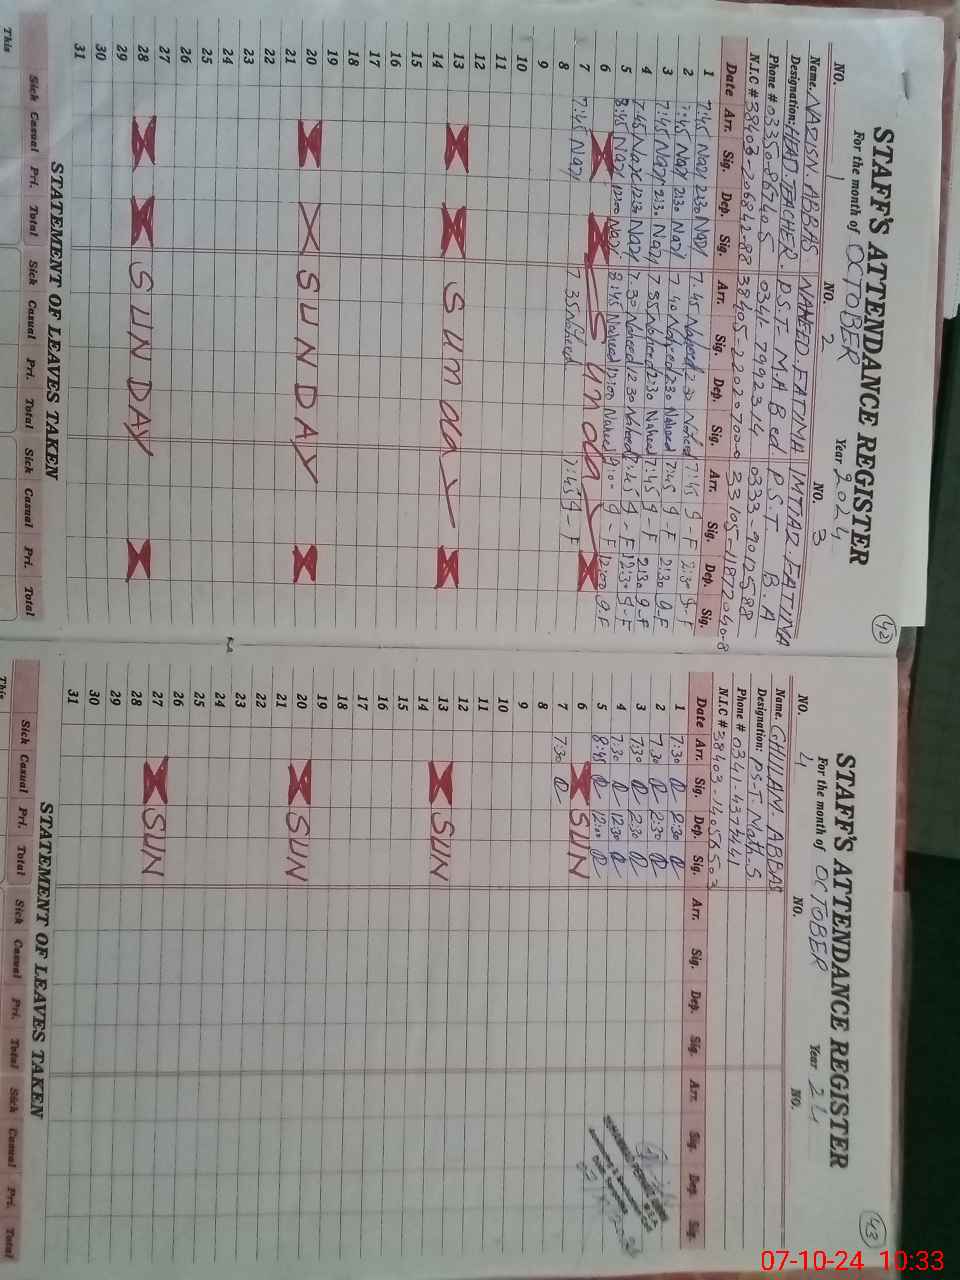 STAFF'S ATTENDANCE REGISTER
42
For the month of OCTOBER Year 2024
NO. 1 NO. 2 NO. 3
Name. NAZISH. ABBAS NAHEED. FATIMA IMTIAZ. FATIMA
Designation: HEAD. TEACHER. P.S.T- M.A B ed. P.S.T B.A
Phone # 0341-7992314 0333-9012588
N.I.C #
Date Arr. Sig. Dep. Sig. Arr. Sig. Dep. Sig. Arr. Sig. Dep. Sig.
1 7:45 Nazi 2:30 Nazi 7.45 Naheed 2:30 Naheed 7:45 9-F 2:30 9-F
2 7:45 Nazi 2:30 Nazi 7.40 Naheed 2:30 Naheed 7:45 9-F 2:30 9-F
3 7:45 Nazi 2:30 Nazi 7.35 Naheed 2:30 Naheed 7:45 9-F 2:30 9-F
4 7:45 Nazi 12:30 Nazi 7.30 Naheed 12:30 Naheed 7:45 9-F 12:30 9-F
5 8:45 Nazi 12:00 Nazi 8:45 Naheed 12:00 Naheed 9:0- 9-F 12:00 9.F
6 Sunday
7 7:45 Nazi 7 35 Naheed 7:45 9-F
8
9
10
11
12
13 Sunday
14
15
16
17
18
19
20 SUNDAY
21
22
23
24
25
26
27
28 SUNDAY
29
30
31
STATEMENT OF LEAVES TAKEN
Sick Casual Pri. Total Sick Casual Pri. Total Sick Casual Pri. Total
This
STAFF'S ATTENDANCE REGISTER
43
For the month of OCTOBER Year 24
NO. 4 NO. NO.
Name. GHULAM. ABBAS
Designation: P.S.T. Math_S
Phone # 0341-4374441
N.I.C # 38403-1405650-3
Date Arr. Sig. Dep. Sig. Arr. Sig. Dep. Sig. Arr. Sig. Dep. Sig.
1 7:30 2:30
2 7.30 2:30
3 7:30 2:30
4 7:30 12:30
5 8:45 12:00
6 SUN
7 7:30
8
9
10
11
12
13 SUN
14
15
16
17
18
19
20 SUN
21
22
23
24
25
26
27 SUN
28
29
30
31
STATEMENT OF LEAVES TAKEN
Sick Casual Pri. Total Sick Casual Pri. Total Sick Casual Pri. Total
This
07-10-24 10:33